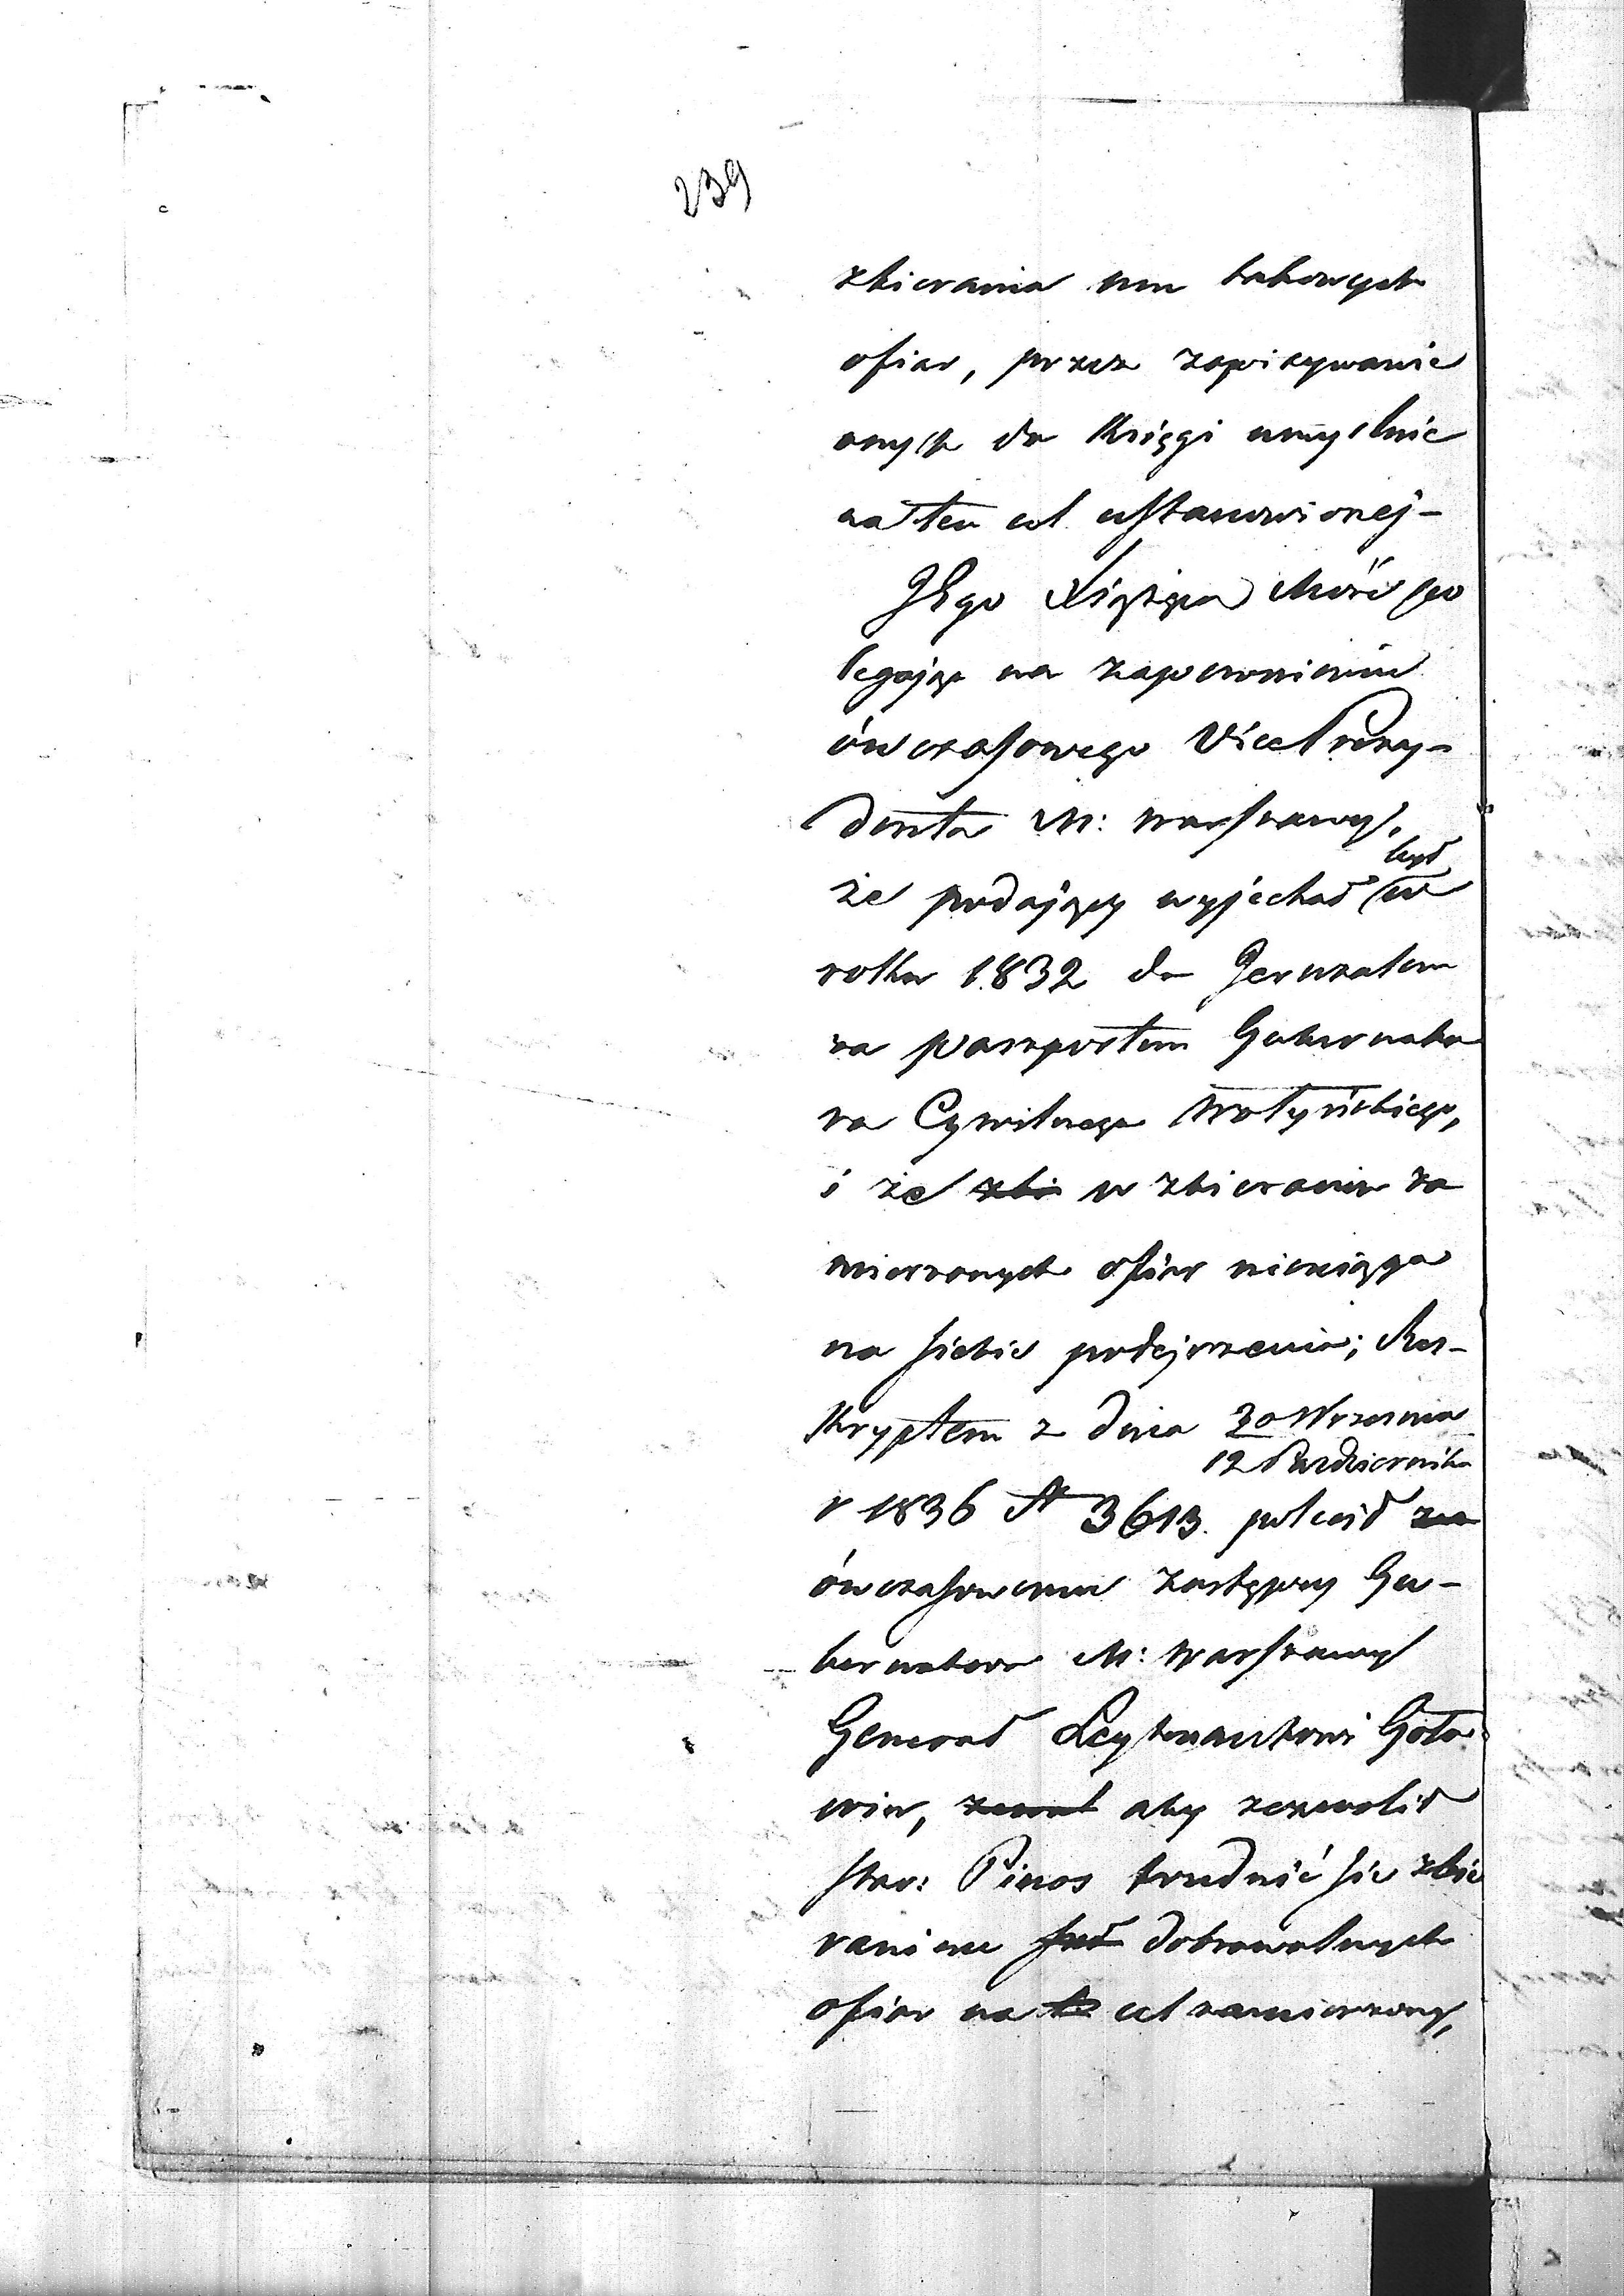 239
zbierania mu takowych
ofiar, przez zapisywanie
onych do Księgi umyślnie
na ten cel ustanowionej -
JEgo Xiążęca Mość po
legając na zapewnieniu
ówczasowego VicePrezy-
denta M: Warszawy,
że podający wyjechał był w
roku 1832 do Jeruzalem
za paszportem Gubernato
ra Cywilnego Wołyńskiego,
i że zbi w zbieraniu za
mierzonych ofiar nieściąga
na siebie podejrzenia; Res-
kryptem z dnia 30 Września
12 Października
r 1836 N 3613. polecił za
ówczasowemu zastępcy Gu-
bernatora M: Warszawy
Generał Leytnantowi Goło
win, zezwol aby zezwolił
star: Pinos trudnić się zbie
raniem dobrowolnych
ofiar na te cel zamierzony,